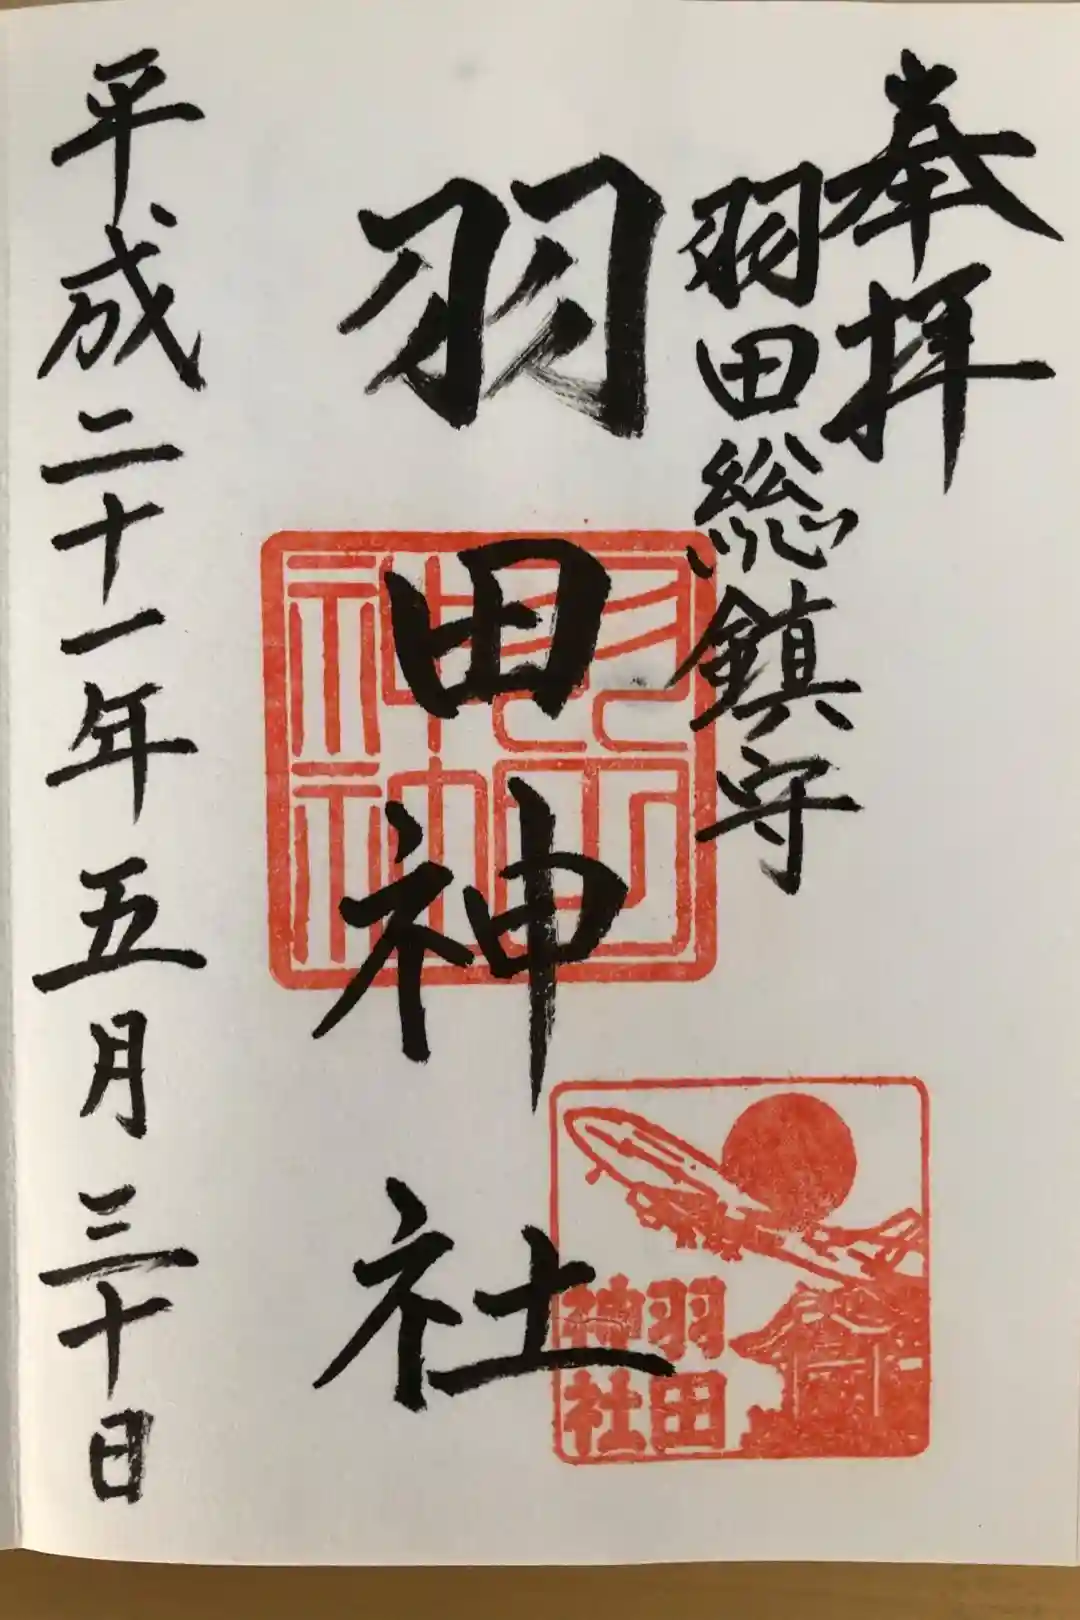 奉拝
羽田総鎮守
羽田神社
羽田
神社
羽田
神社
平成二十一年五月三十日